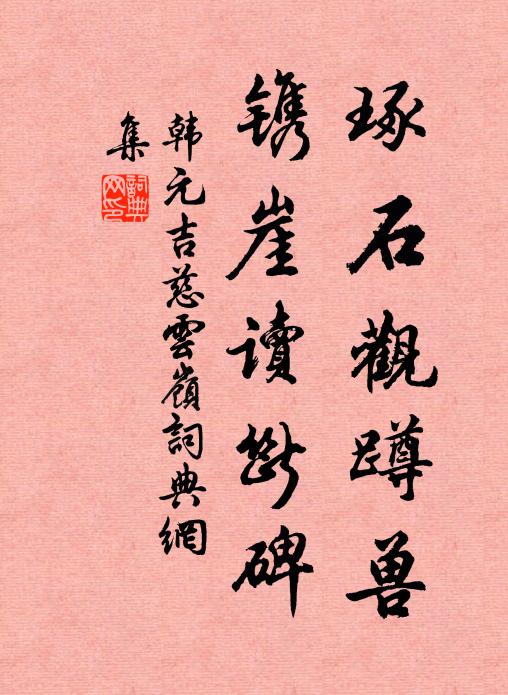 琢石觀蹲兽
镌崖读断碑
韩元吉慈雲嶺詞典網
集
詞典网印